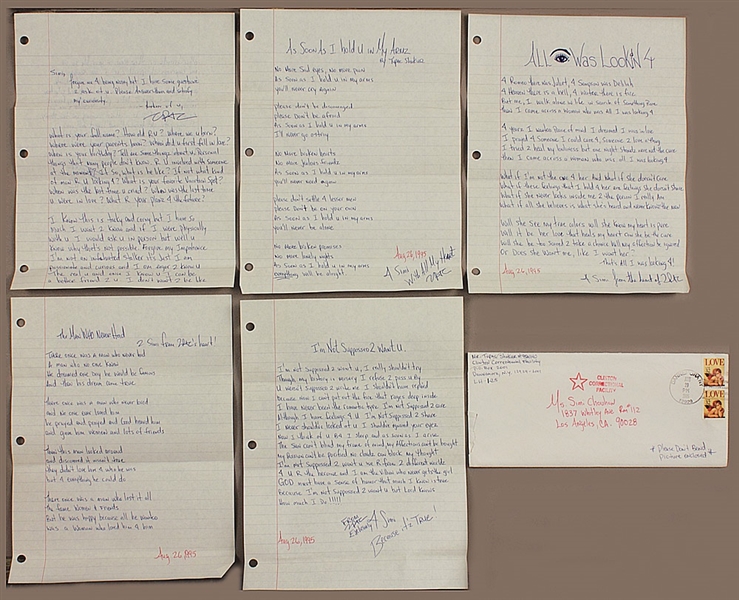 Simi,
forgive me 4 being nosy but I have some questions
2 ask of u. Please Answer them and satisfy
my curiosity.
2PAC
What is your full name? How old R U? Where we u born?
Where were your parents born? When did u first fall in love?
When is your birthday? Tell me some things about u Personal
things that many people don't know. R U involved with someone
at the moment? If so, what is he like? If not what kind
of man R U looking 4? What is your favorite Vacation Spot?
When was the 1st time u cried? When was the last time
u were in love? What R your plans 4 the future?
I know this is tacky and corny but I have so
much I want 2 know and if I were physically
with u I would ask u in person but well u
know why that's not possible. forgive my Impatience
I'm not an infatuated stalker it's just I am
passionate and curious and I am eager 2 know
the real u and once I know u I can be
a better friend 2 u. I don't want 2 be like
As Soon As I hold U in My Armz
by Tupac Shakur
No More Sad eyes, no more pain
As soon as I hold u in my arms
you'll never cry again!
please don't be discouraged
please Don't be afraid
As soon as I hold u in my arms
I'll never go astray
No More broken hearts
No more jealous friendz
As soon as I hold u in my arms
you'll never need again
please don't settle 4 lesser men
please Don't be on your own
As soon as I hold u in my arms
you'll never be alone
No more broken promises
No more lonely nights
As soon as I hold u in my arms
everything will be alright
Aug. 26, 1995
4 Simi
With All My Heart
2PAC
ALL 👁 Was Lookin 4
4 Romeo there was Juliet, 4 Sampson was Delilah
4 Heaven there is a hell, 4 water there is fire
But me, I walk alone in life in search of Something Pure
then I came across a Woman who was All I was looking 4
4 years I wanted Peace of mind I dreamed I was in love
I prayed 4 Someone I could care 4, Someone 2 love
I tried 2 heal my loneliness but one night stands were not the cure
then I came across a woman who was all I was looking 4
What if I'm not the one 4 her And what if she doesn't care
What if these feelings that I hold 4 her are feelings she doesn't share
What if she never looks inside me 2 the person I really am
What if all she believes is what she's heard and never knows the man
Will she see my true colors will she know my heart is pure
Will it be her love that heals my heart can she be the cure
Will she be too Scared 2 take a chance will my affection be ignored
Or Does she Want me, like I want her...
That's All I was looking 4!
Aug. 26, 1995
4 Simi from the heart of 2PAC
The Man Who Never Had
2 Simi from 2PAC'z heart!
There once was a man who never had
A man who no one knew
He dreamed one day he would be famous
And then his dream came true
There once was a man who never lived
and no one ever loved him
he prayed and prayed and God heard him
and gave him women and lots of friends
Then this man looked around
and discovered it wasn't true
they didn't love him 4 who he was
but 4 everything he could do
There once was a man who lost it all
The fame, Women & friends
But he was happy because all he wanted
was a Woman who loved him 4 him
Aug. 26, 1995
I'm Not Supposed 2 Want U.
I'm not supposed 2 want u, I really shouldn't try
Though my history is misery I refuse 2 pass u by
U weren't supposed 2 write me & I shouldn't have replied
Because now I can't put out the fire that rages deep inside
I have never been the romantic type. I'm not Supposed 2 care
Although I have feelings 4 U I'm Not Supposed 2 share
I never shoulda looked at U I shoulda ignored your eyes
Now I think of U B4 I sleep and as soon as I arise
The Sun can't blind my train of mind my Affection can't be bought
My Passion can't be pacified no clouds can block my thought
I'm not Supposed 2 want u we R from 2 different worlds
4 U R the heroine and I am the villain who never gets the girl
GOD must have a sense of humor that much I know is true
Because I'm not Supposed 2 want u but Lord knows
How much I Do!!!!!
Aug. 26, 1995
From 2PAC
4 Simi
Because it'z True!
Mr. Tupac Shakur
Clinton Correctional Facility
P.O. Box 2001
Dannemora, N.Y.
CLINTON
CORRECTIONAL
FACILITY
Ms. Simi Chouhan
1837 Whitley Ave Rm #112
Los Angeles, CA. 90028
LOVE
LOVE
* Please Don't Bend *
picture enclosed